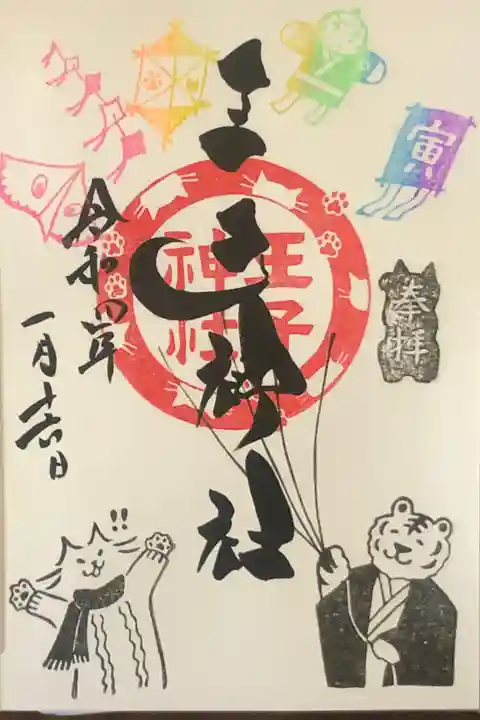 寅
奉拝
王子神社
王子神社
令和四年
一月十六日
!!